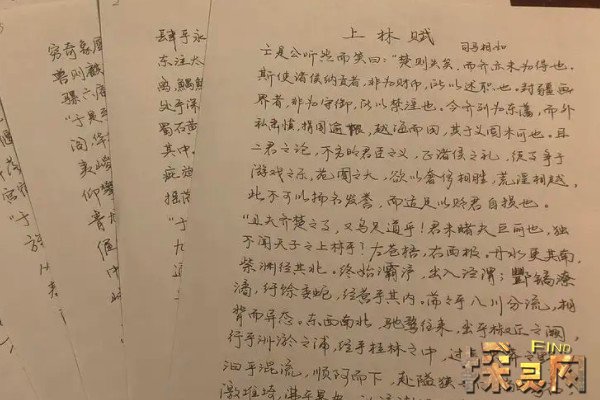 穷奇象犀
兽则麒
于是
仰攀
偃
中
肆乎永
东注太
鰅鳙
处乎深
蜀石黄
其中。
摇荡
"于
上林赋
司马相如
亡是公听然而笑曰："楚则失矣，而齐亦未为得也。
斯使诸侯纳贡者，非为财币，所以述职也。封疆画
界者，非为守御，所以禁淫也。今齐列为东藩，而外
私肃慎，捐国逾限，越海而田，其于义固未可也。且
二君之论，不务明君臣之义，正诸侯之礼，徒事争于
游戏之乐，苑囿之大，欲以奢侈相胜，荒淫相越，
此不可以扬名发誉，而适足以贬君自损也。
"且夫齐楚之事，又乌足道乎！君未睹夫巨丽也，独
不闻天子之上林乎？左苍梧，右西极。丹水更其南，
紫渊径其北。终始灞浐，出入泾渭；酆镐潦
潏，纡馀委蛇，经营乎其内。荡荡乎八川分流，相
背而异态。东西南北，驰骛往来，出乎椒丘之阙，
行乎洲淤之浦，经乎桂林之中，过
汩乎混流，顺阿而下，赴隘狭
激堆埼，沸乎暴怒，
FIND
探灵网